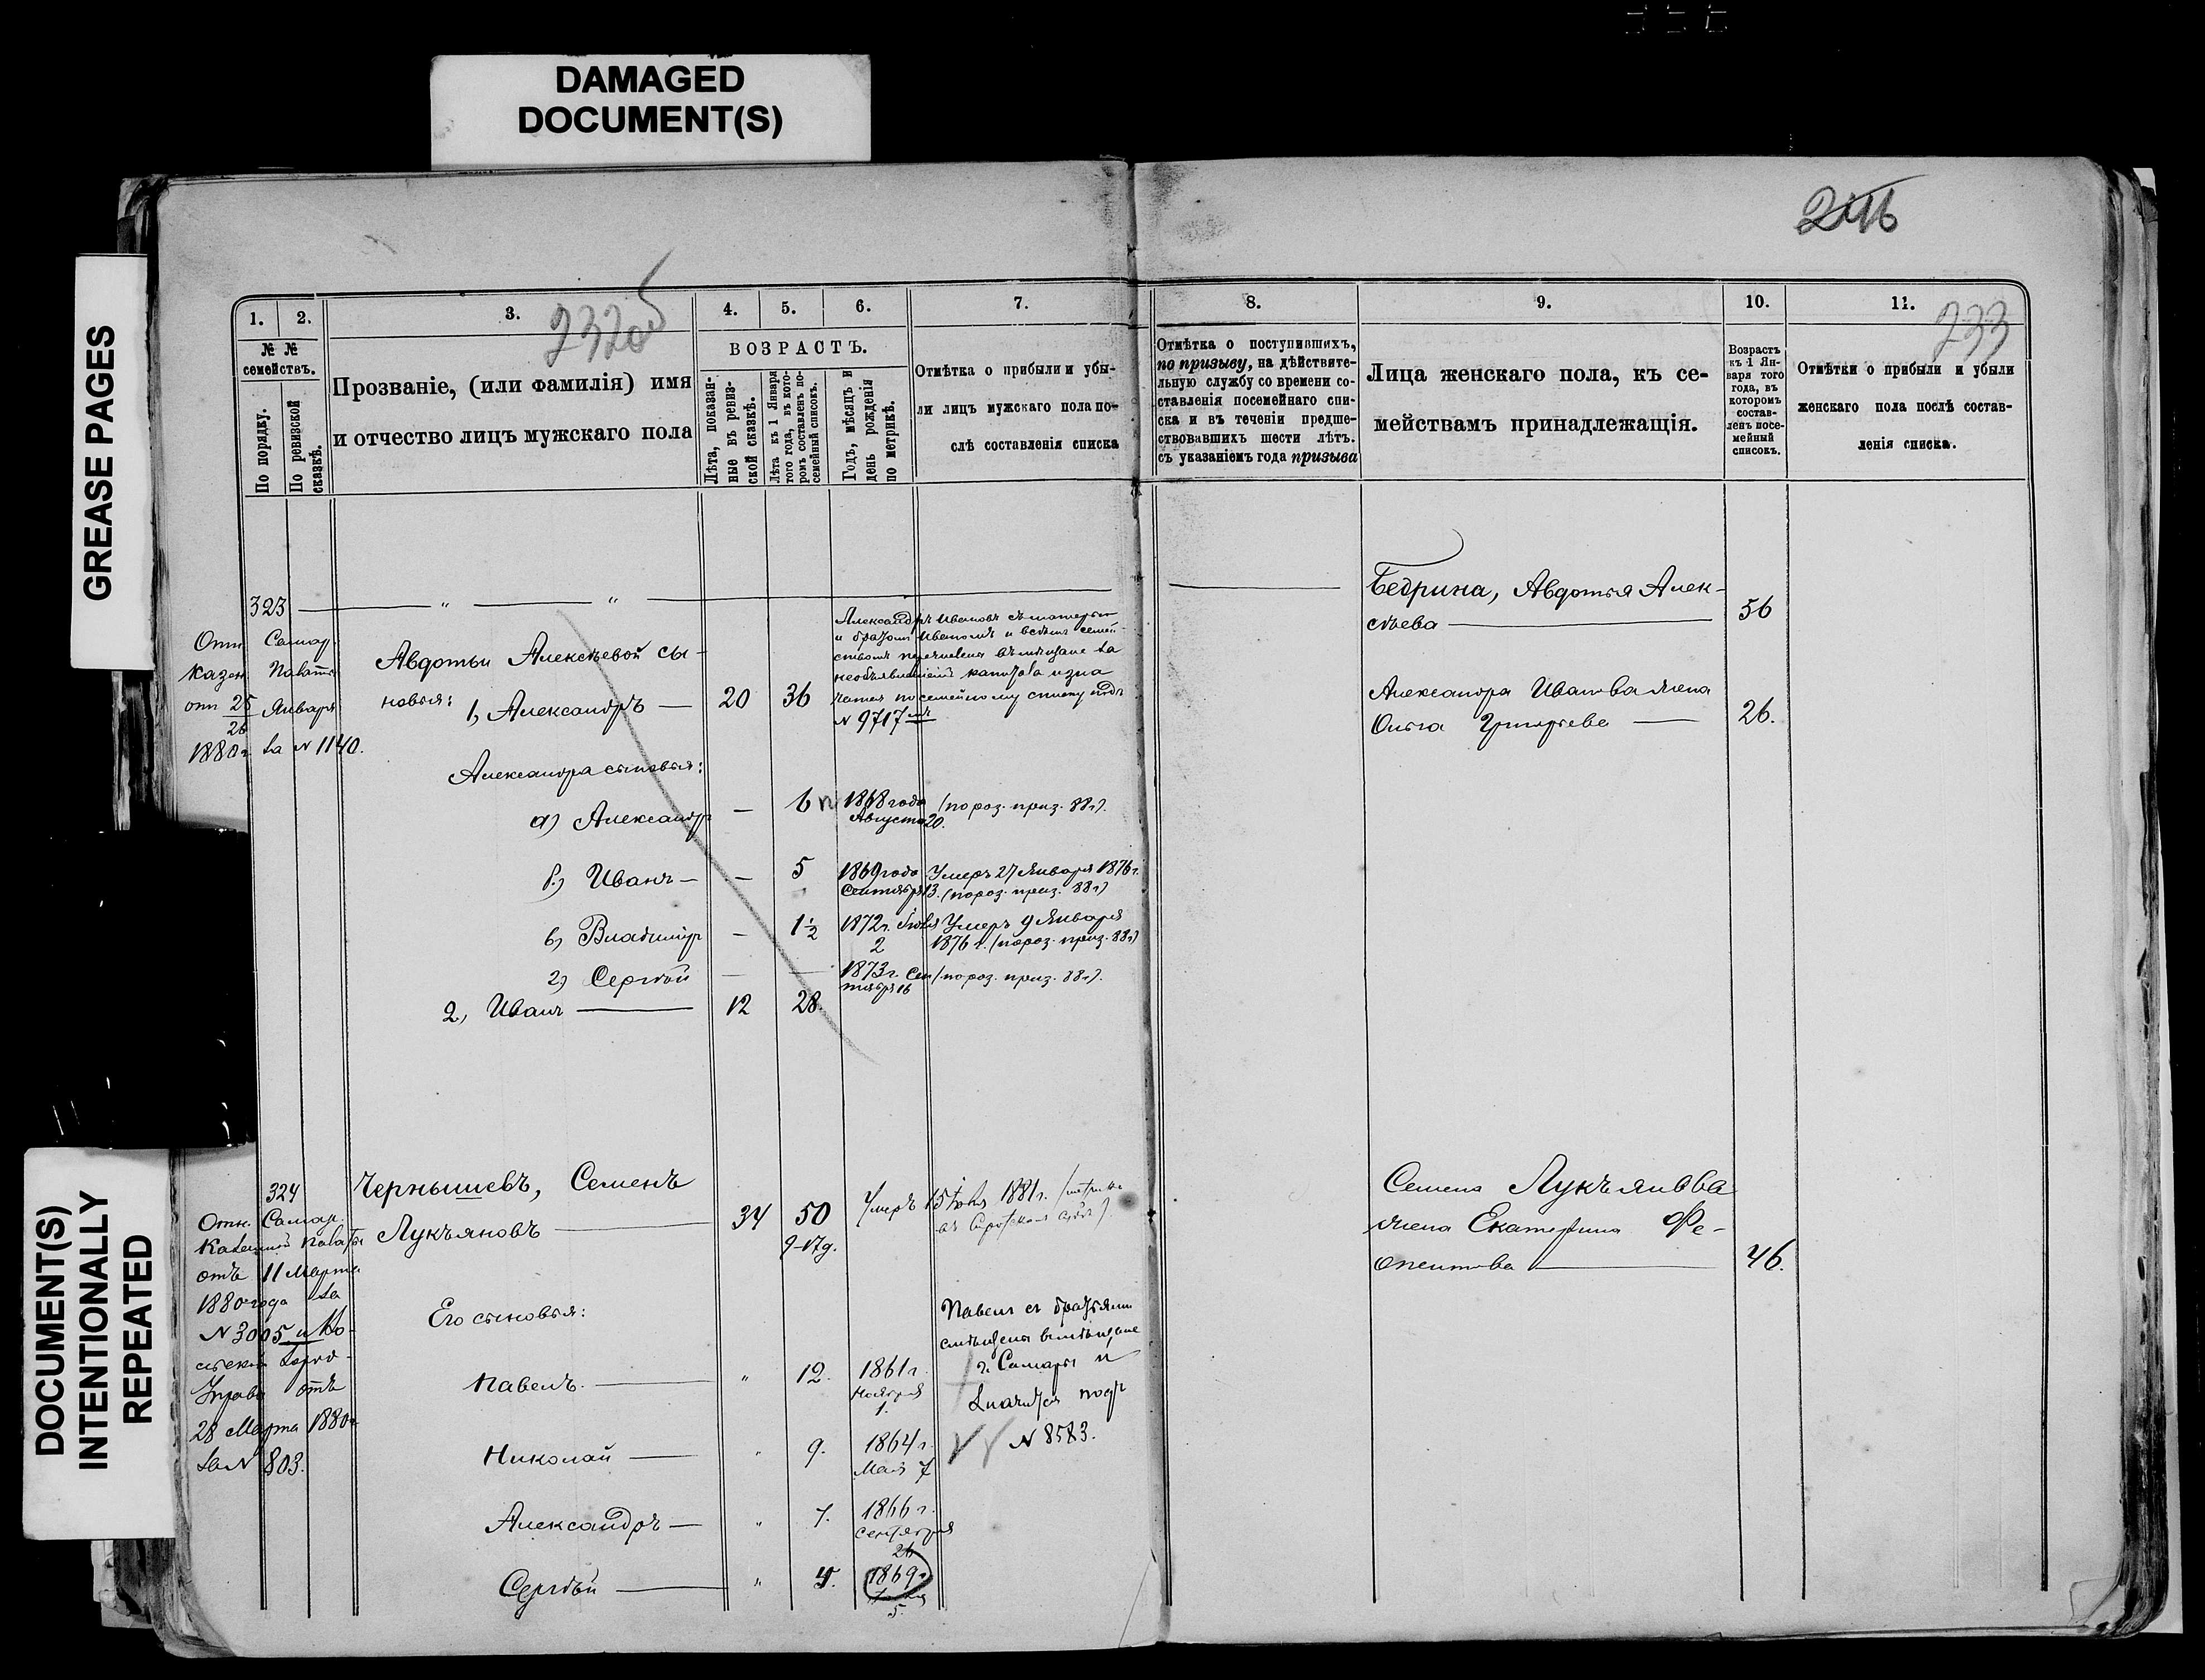 DAMAGED
DOCUMENT(S)
GREASE PAGES
DOCUMENT(S)
INTENTIONALLY
REPEATED
246
232об
233
1.
2.
3.
4.
5.
6.
7.
8.
9.
10.
11.
№ №
семействъ.
По порядку.
По ревизской
сказкѣ.
Прозваніе, (или фамилія) имя
и отчество лицъ мужскаго пола
ВОЗРАСТЪ.
Лѣта, показан-
ные въ ревиз-
ской сказкѣ.
Лѣта къ 1 Января
того года, въ кото-
ромъ составленъ по-
семейный списокъ.
Годъ, мѣсяцъ и
день рожденія
по метрикѣ.
Отмѣтка о прибыли и убы-
ли лицъ мужскаго пола по-
слѣ составленія списка
Отмѣтка о поступившихъ,
по призыву, на дѣйствите-
льную службу со времени со-
ставленія посемейнаго спи-
ска и въ теченіи предше-
ствовавшихъ шести лѣтъ.
съ указаніемъ года призыва
Лица женскаго пола, къ се-
мействамъ принадлежащія.
Возрастъ
къ 1 Ян-
варя того
года, въ
которомъ
состав-
ленъ посе-
мейный
списокъ.
Отмѣтки о прибыли и убыли
женскаго пола послѣ состав-
ленія списка.
323 — " — " —
Отн. Самар.
Казен. Палаты
отъ 25
26 Января
1880 г. за № 1140.
Авдотьи Алексѣевой сы-
новья: 1, Александръ — 20 36
Александръ Ивановъ съ матерью
и братомъ Иваномъ и всѣмъ семей-
ствомъ перечислены въ мѣщане за
необъявленіемъ капитала и зна
чатся по семейному списку подъ
№ 9717
Бедрина, Авдотья Алек-
сѣева — 56
Александра Иванова жена
Ольга Григорьева — 26.
Александра сыновья:
а) Александр — 6 1868 года
Августа 20. (пороз. приз. 88 г).
б) Иванъ — — 5 1869 года
Сентября 13. Умеръ 27 Января 1876 г.
(пороз. приз. 88 г)
в) Владиміръ — 1½ 1872 г. Іюля
2 Умеръ 9 Января
1876 г. (пороз. приз. 88 г)
г) Сергѣй — — 1873 г. Сен
тября 16 (пороз. приз. 88 г).
2, Иванъ — 12 28.
324
Отн. Самар.
Казенной Палаты
отъ 11 Марта
1880 года за
№ 3005 и
Управы отъ
28 Марта 1880 г.
за № 803.
Чернышевъ, Семенъ
Лукъяновъ — 34 50
Умеръ 15 Іюля 1881 г.
Его сыновья:
Павелъ. — " 12. 1861 г.
Ноября
1.
Николай — " 9. 1864 г.
Мая 7
Александръ — " 7. 1866 г.
Сентября
26
Сергѣй — " 4. 1869 г.
5.
Павелъ съ братьями
г. Самары и
значится подъ
№ 8583.
Семена Лукъянова
жена Екатерина Фе-
октистова — 46.